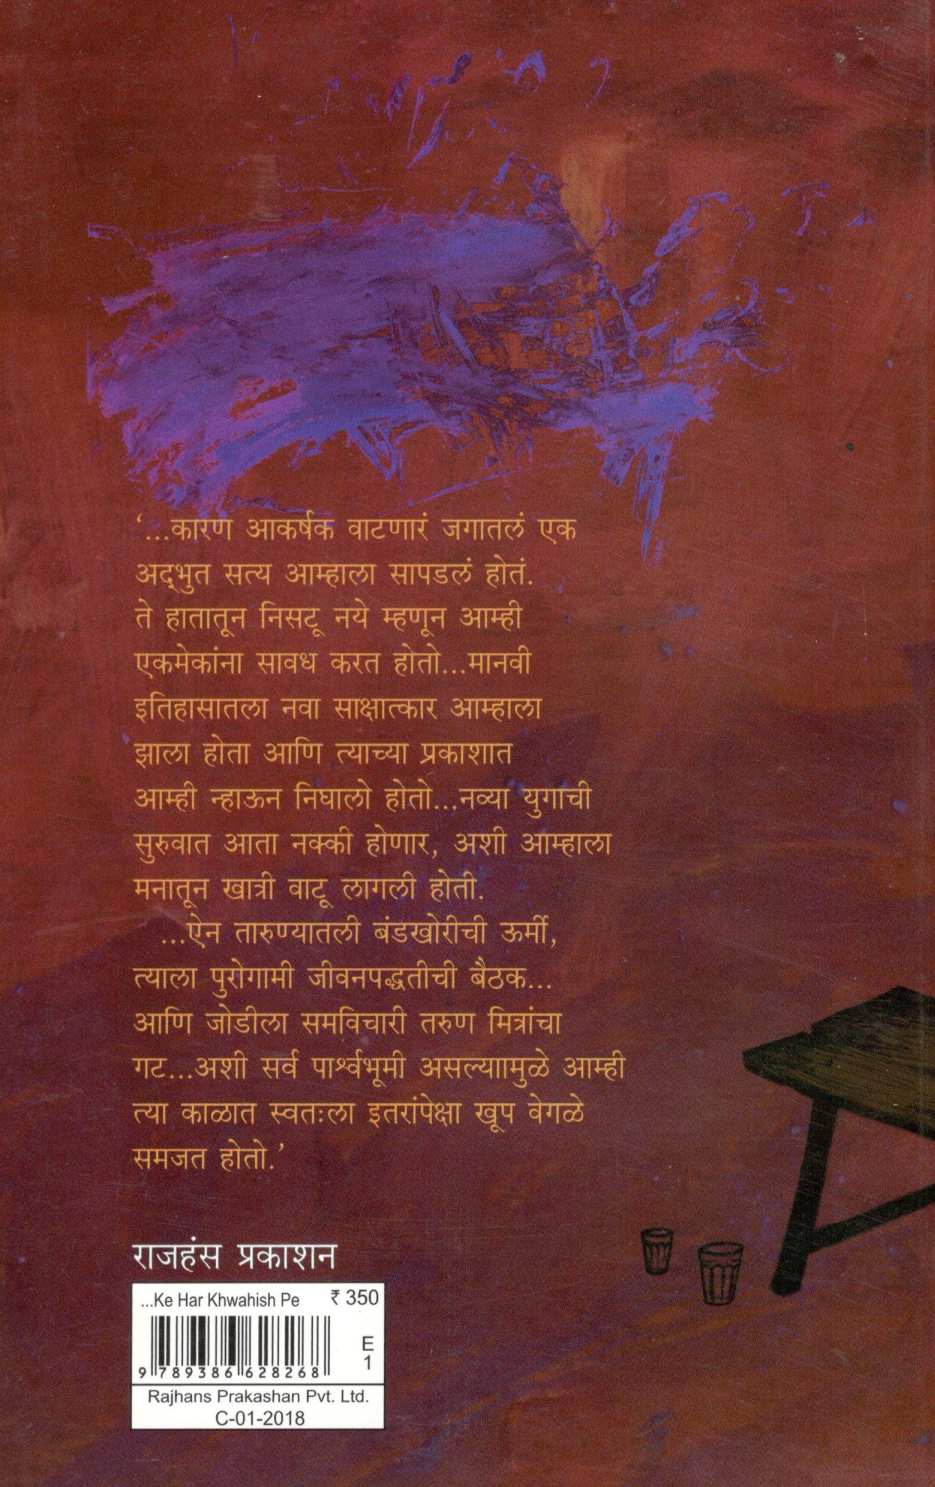 ‘...कारण आकर्षक वाटणारं जगातलं एक
अद्‌भुत सत्य आम्हाला सापडलं होतं.
ते हातातून निसटू नये म्हणून आम्ही
एकमेकांना सावध करत होतो...मानवी
इतिहासातला नवा साक्षात्कार आम्हाला
झाला होता आणि त्याच्या प्रकाशात
आम्ही न्हाऊन निघालो होतो...नव्या युगाची
सुरुवात आता नक्की होणार, अशी आम्हाला
मनातून खात्री वाटू लागली होती.
...ऐन तारुण्यातली बंडखोरीची ऊर्मी,
त्याला पुरोगामी जीवनपद्धतीची बैठक...
आणि जोडीला समविचारी तरुण मित्रांचा
गट...अशी सर्व पार्श्वभूमी असल्याामुळे आम्ही
त्या काळात स्वतःला इतरांपेक्षा खूप वेगळे
समजत होतो.’
राजहंस प्रकाशन
...Ke Har Khwahish Pe ₹ 350
E
1
9 789386 628268
Rajhans Prakashan Pvt. Ltd.
C-01-2018